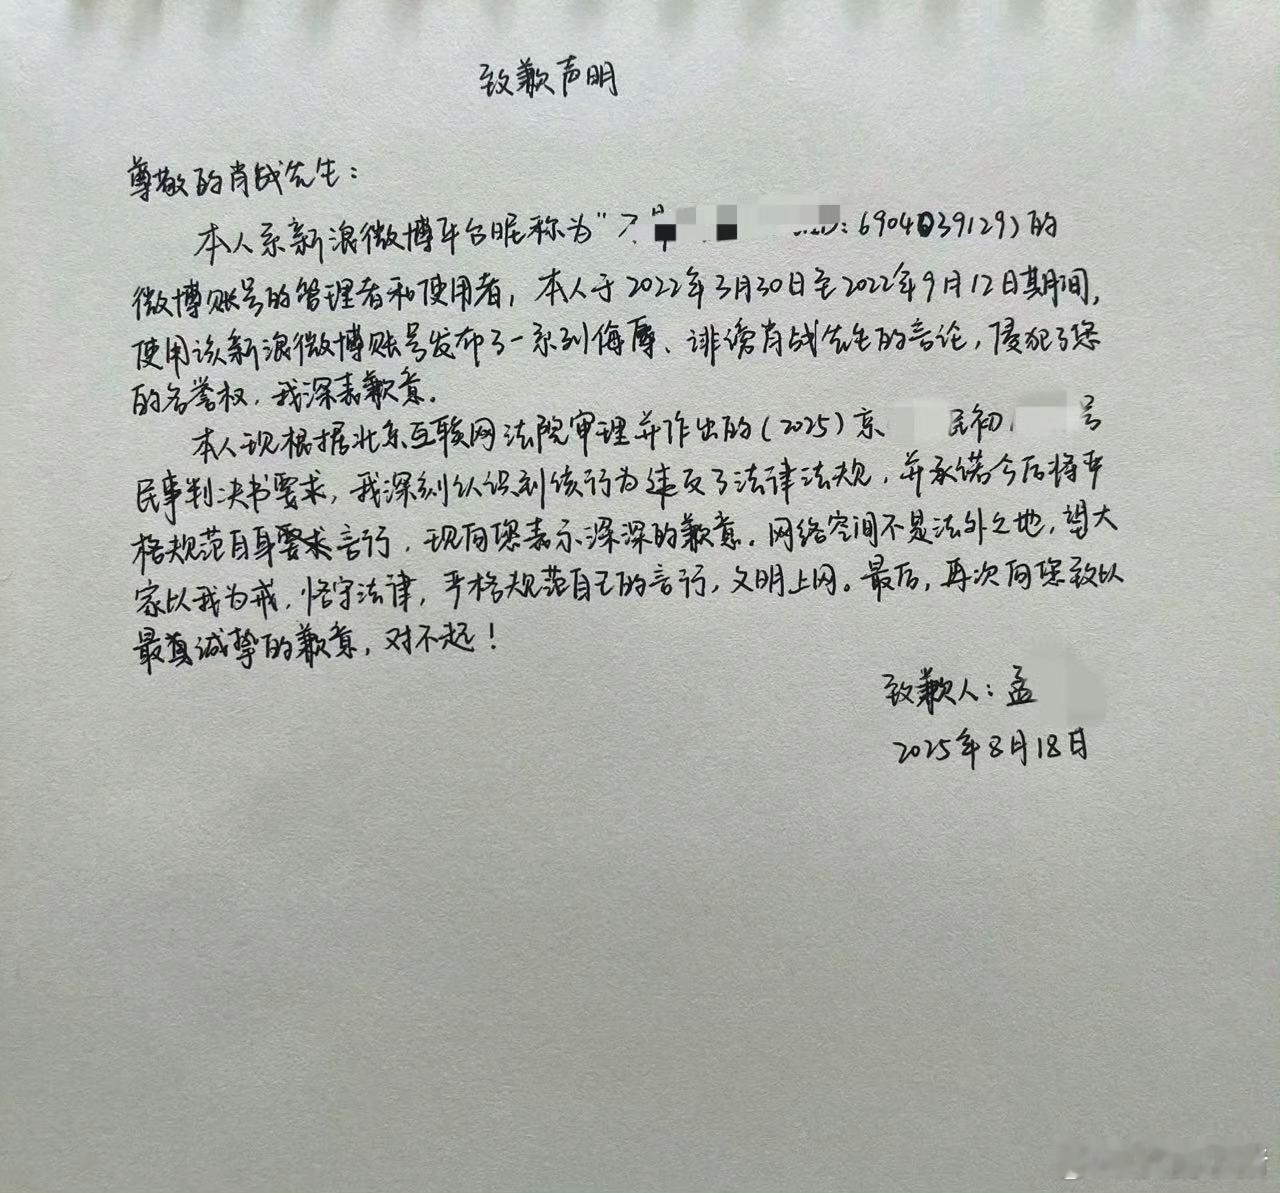 致歉声明
尊敬的肖战先生：
本人系新浪微博平台昵称为"不 ID：6904039129）的
微博账号的管理者和使用者，本人于2022年3月30日至2022年9月12日期间，
使用该新浪微博账号发布了一系列侮辱、诽谤肖战先生的言论，侵犯了您
的名誉权，我深表歉意。
本人现根据北京互联网法院审理并作出的（2025）京 民初 号
民事判决书要求，我深刻认识到该行为违反了法律法规，并承诺今后将严
格规范自身要求言行，现向您表示深深的歉意。网络空间不是法外之地，望大
家以我为戒，恪守法律，严格规范自己的言行，文明上网。最后，再次向您致以
最真诚挚的歉意，对不起！
致歉人：孟
2025年8月18日